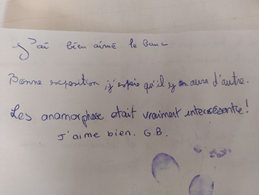 J'ai bien aimé le banc
Bonne exposition j'espère qu'il y en aura d'autre.
Les anamorphose était vraiment interressante !
J'aime bien. G B.